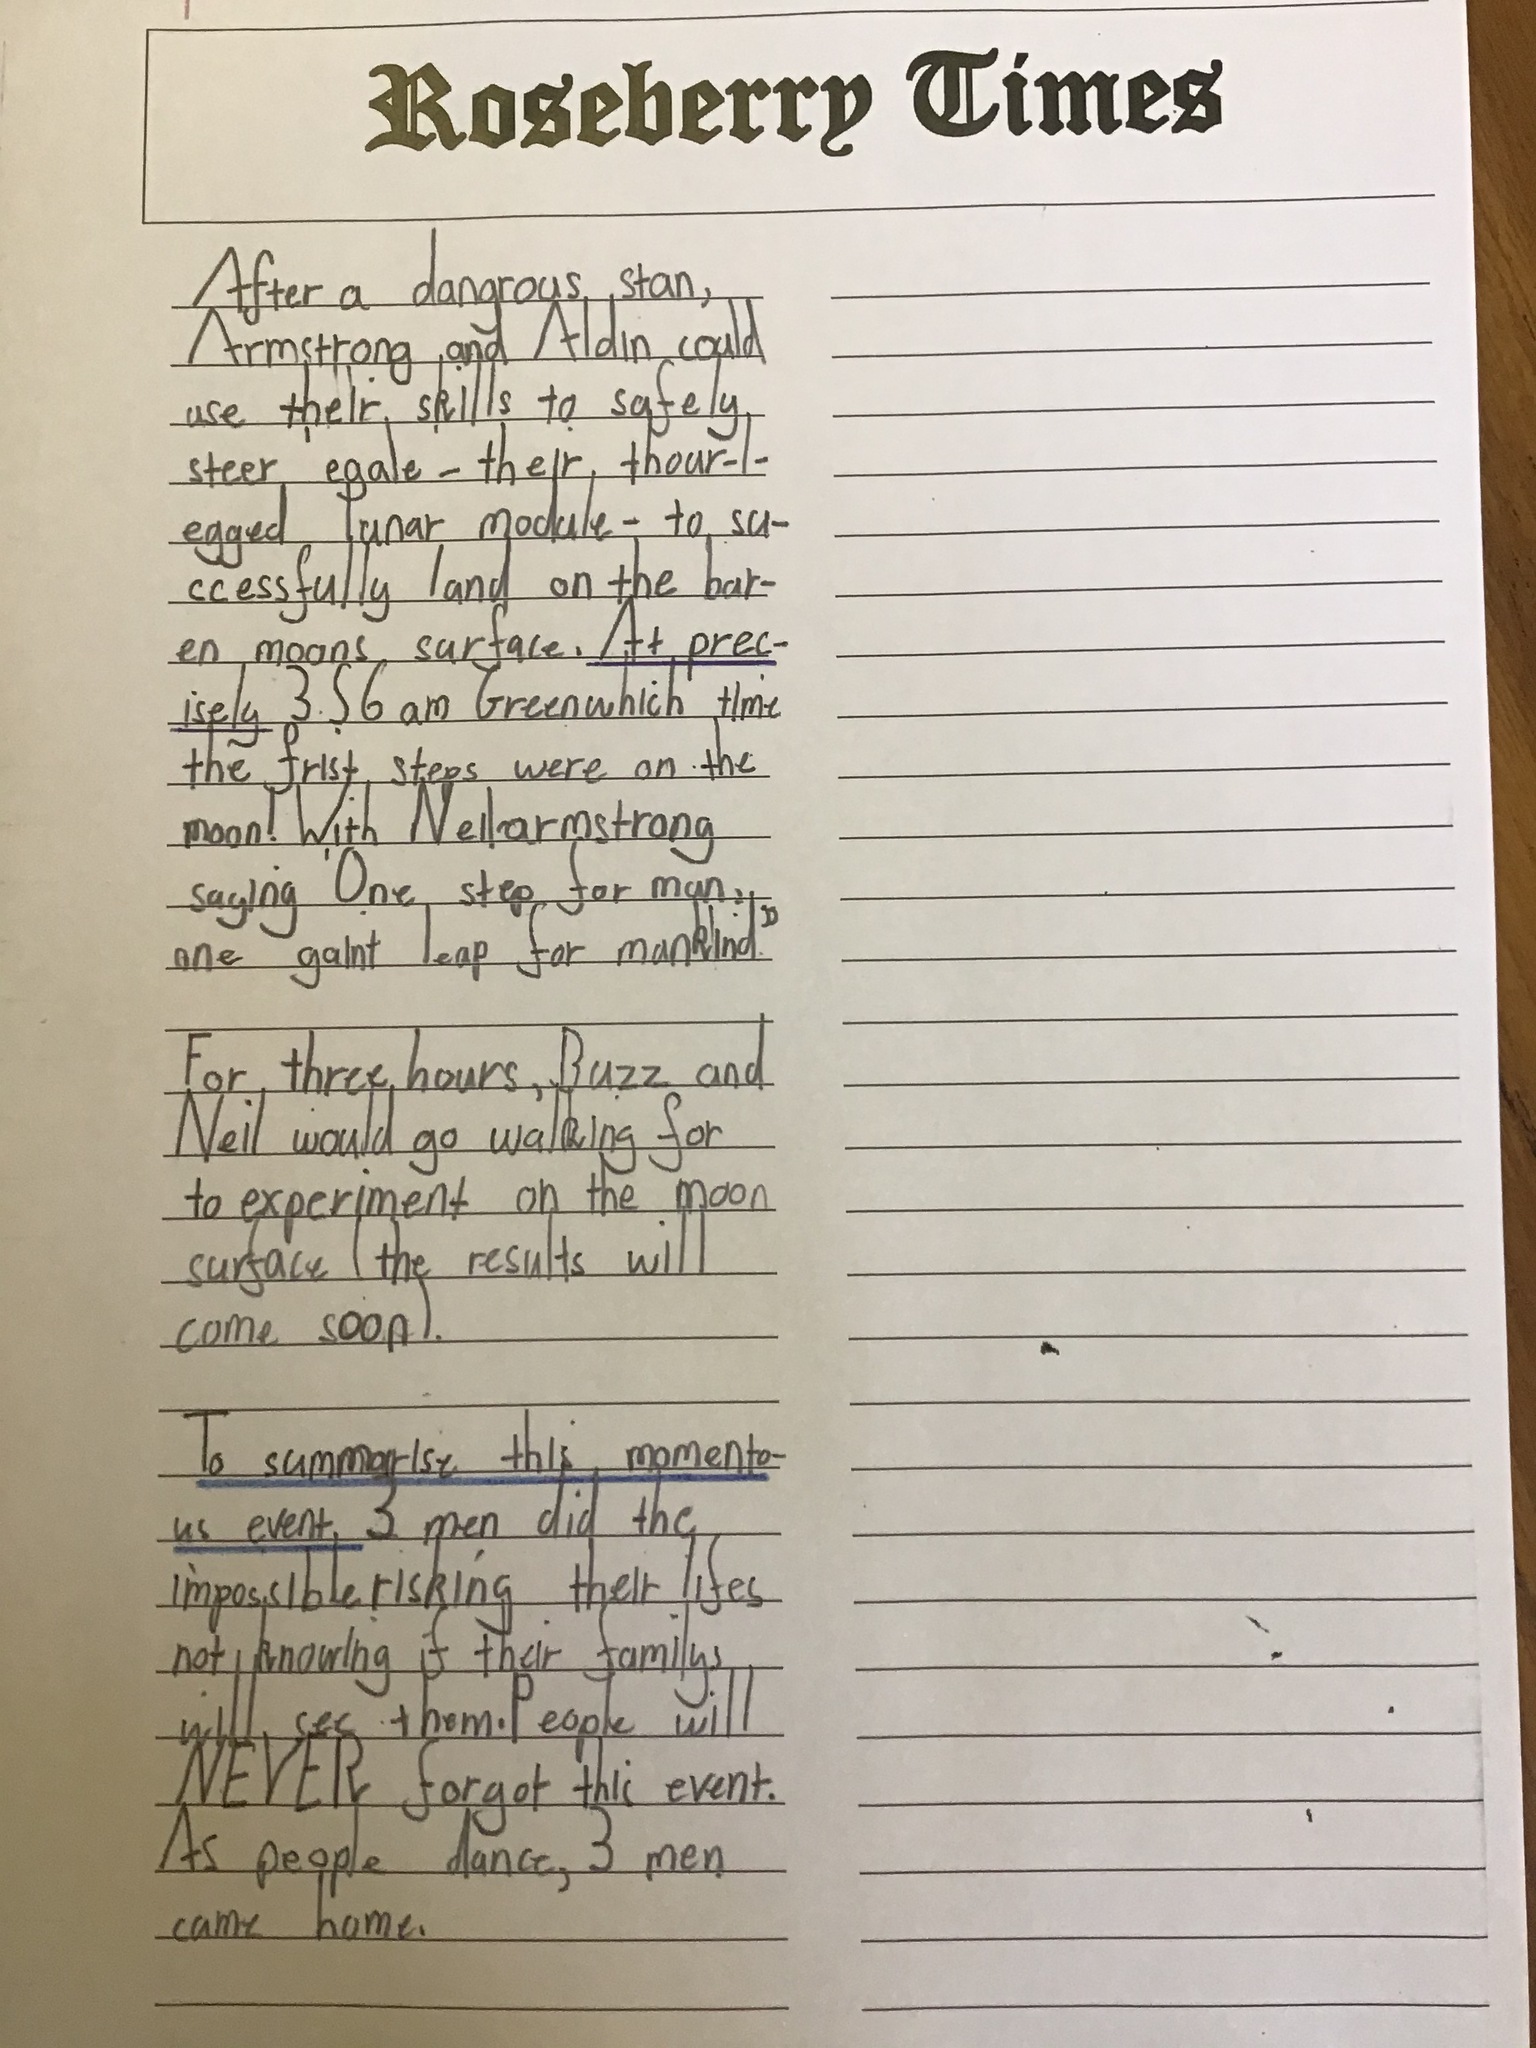 Roseberry Times
After a dangrous stan,
Armstrong and Aldin could
use their skills to safely
steer 'egale - their thour-l-
egged lunar module - to su-
ccessfully land on the bar-
en moons surface. At prec-
isely 3.56 am Greenwhich time
the frist steps were on the
moon! With Neil armstrong
saying 'One step for man,
one gaint leap for mankind."
For three hours, Buzz and
Neil would go walking for
to experiment on the moon
surface (the results will
come soon).
To summarise this momento-
us event, 3 men did the
impossible risking their lifes
not knowing if their familys
will see them. People will
NEVER forgot this event.
As people dance, 3 men
came home.